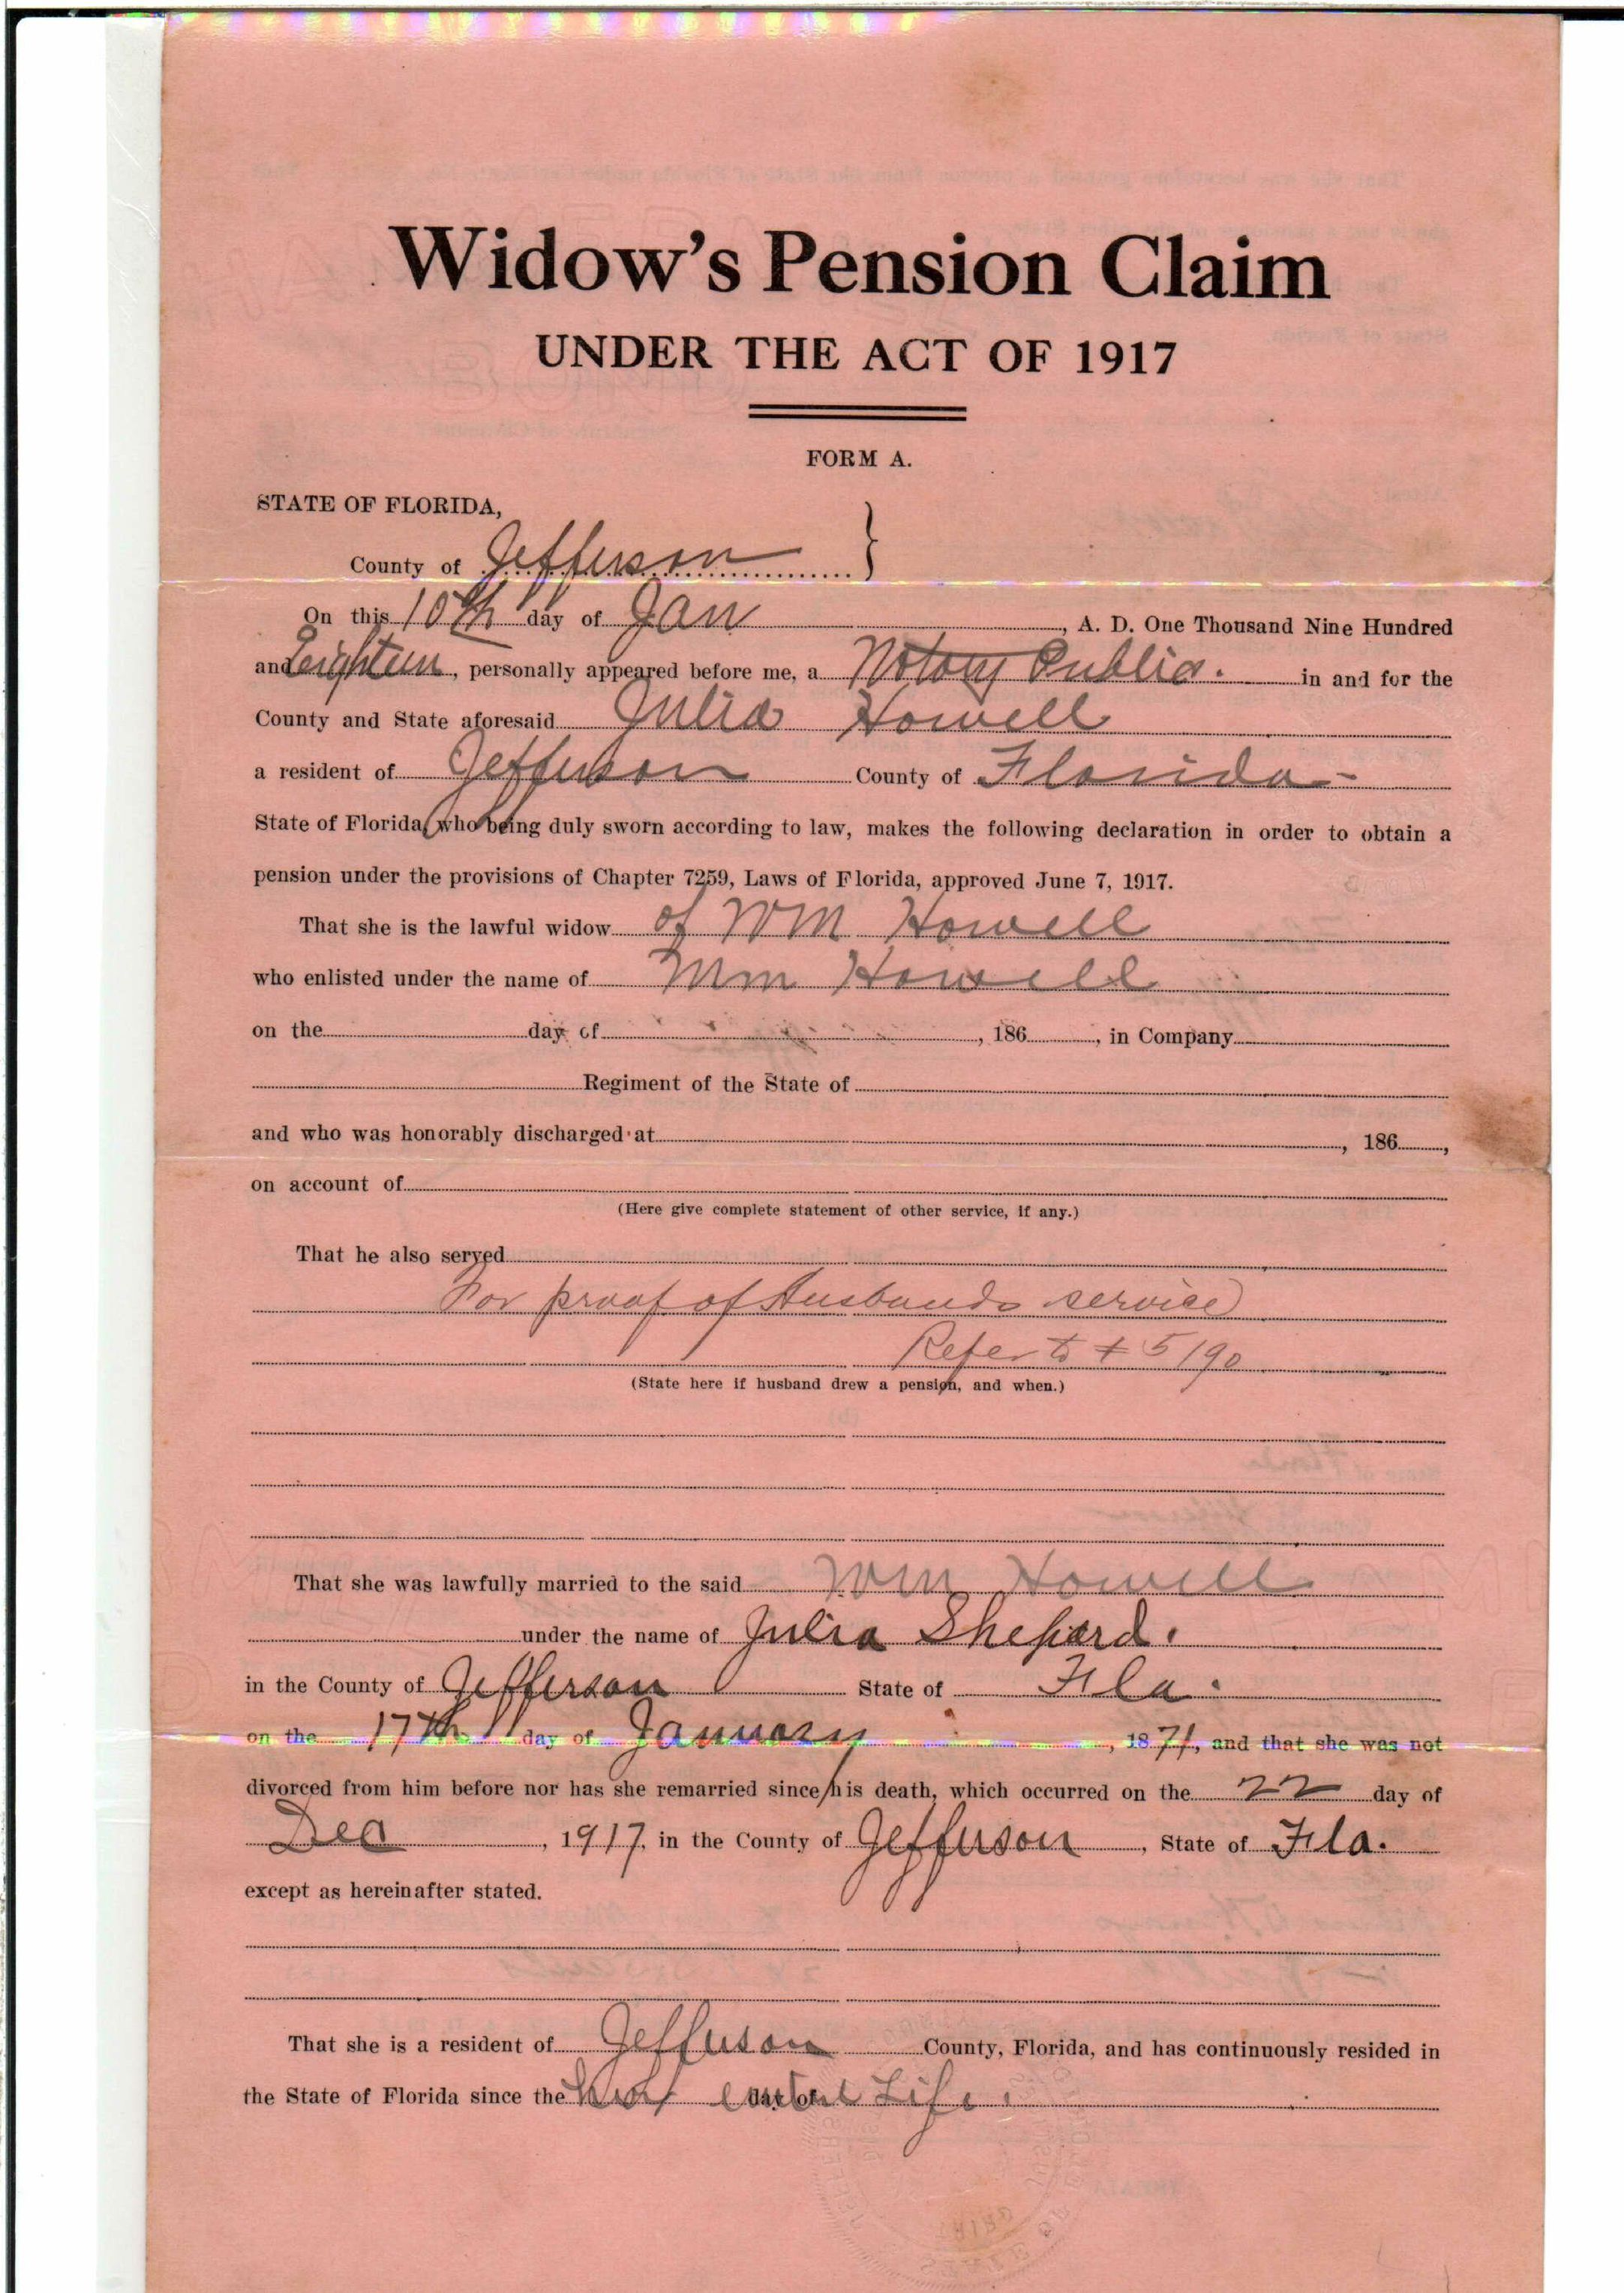 Widow's Pension Claim
UNDER THE ACT OF 1917
FORM A.
STATE OF FLORIDA,
County of Jefferson }
On this 10th day of Jan, A. D. One Thousand Nine Hundred
and Eighteen, personally appeared before me, a Notary Public. in and for the
County and State aforesaid Julia Howell
a resident of Jefferson County of Florida-
State of Florida, who being duly sworn according to law, makes the following declaration in order to obtain a
pension under the provisions of Chapter 7259, Laws of Florida, approved June 7, 1917.
That she is the lawful widow of WM Howell
who enlisted under the name of Wm Howell
on the day of , 186 , in Company
Regiment of the State of
and who was honorably discharged at , 186 ,
on account of
(Here give complete statement of other service, if any.)
That he also served
For proof of Husbands service
Refer to # 5190
(State here if husband drew a pension, and when.)
That she was lawfully married to the said WM Howell
under the name of Julia Shepard.
in the County of Jefferson State of Fla.
on the 17th day of January, 1871, and that she was not
divorced from him before nor has she remarried since his death, which occurred on the 22 day of
Dec, 1917, in the County of Jefferson, State of Fla.
except as hereinafter stated.
That she is a resident of Jefferson County, Florida, and has continuously resided in
the State of Florida since the day of Life.